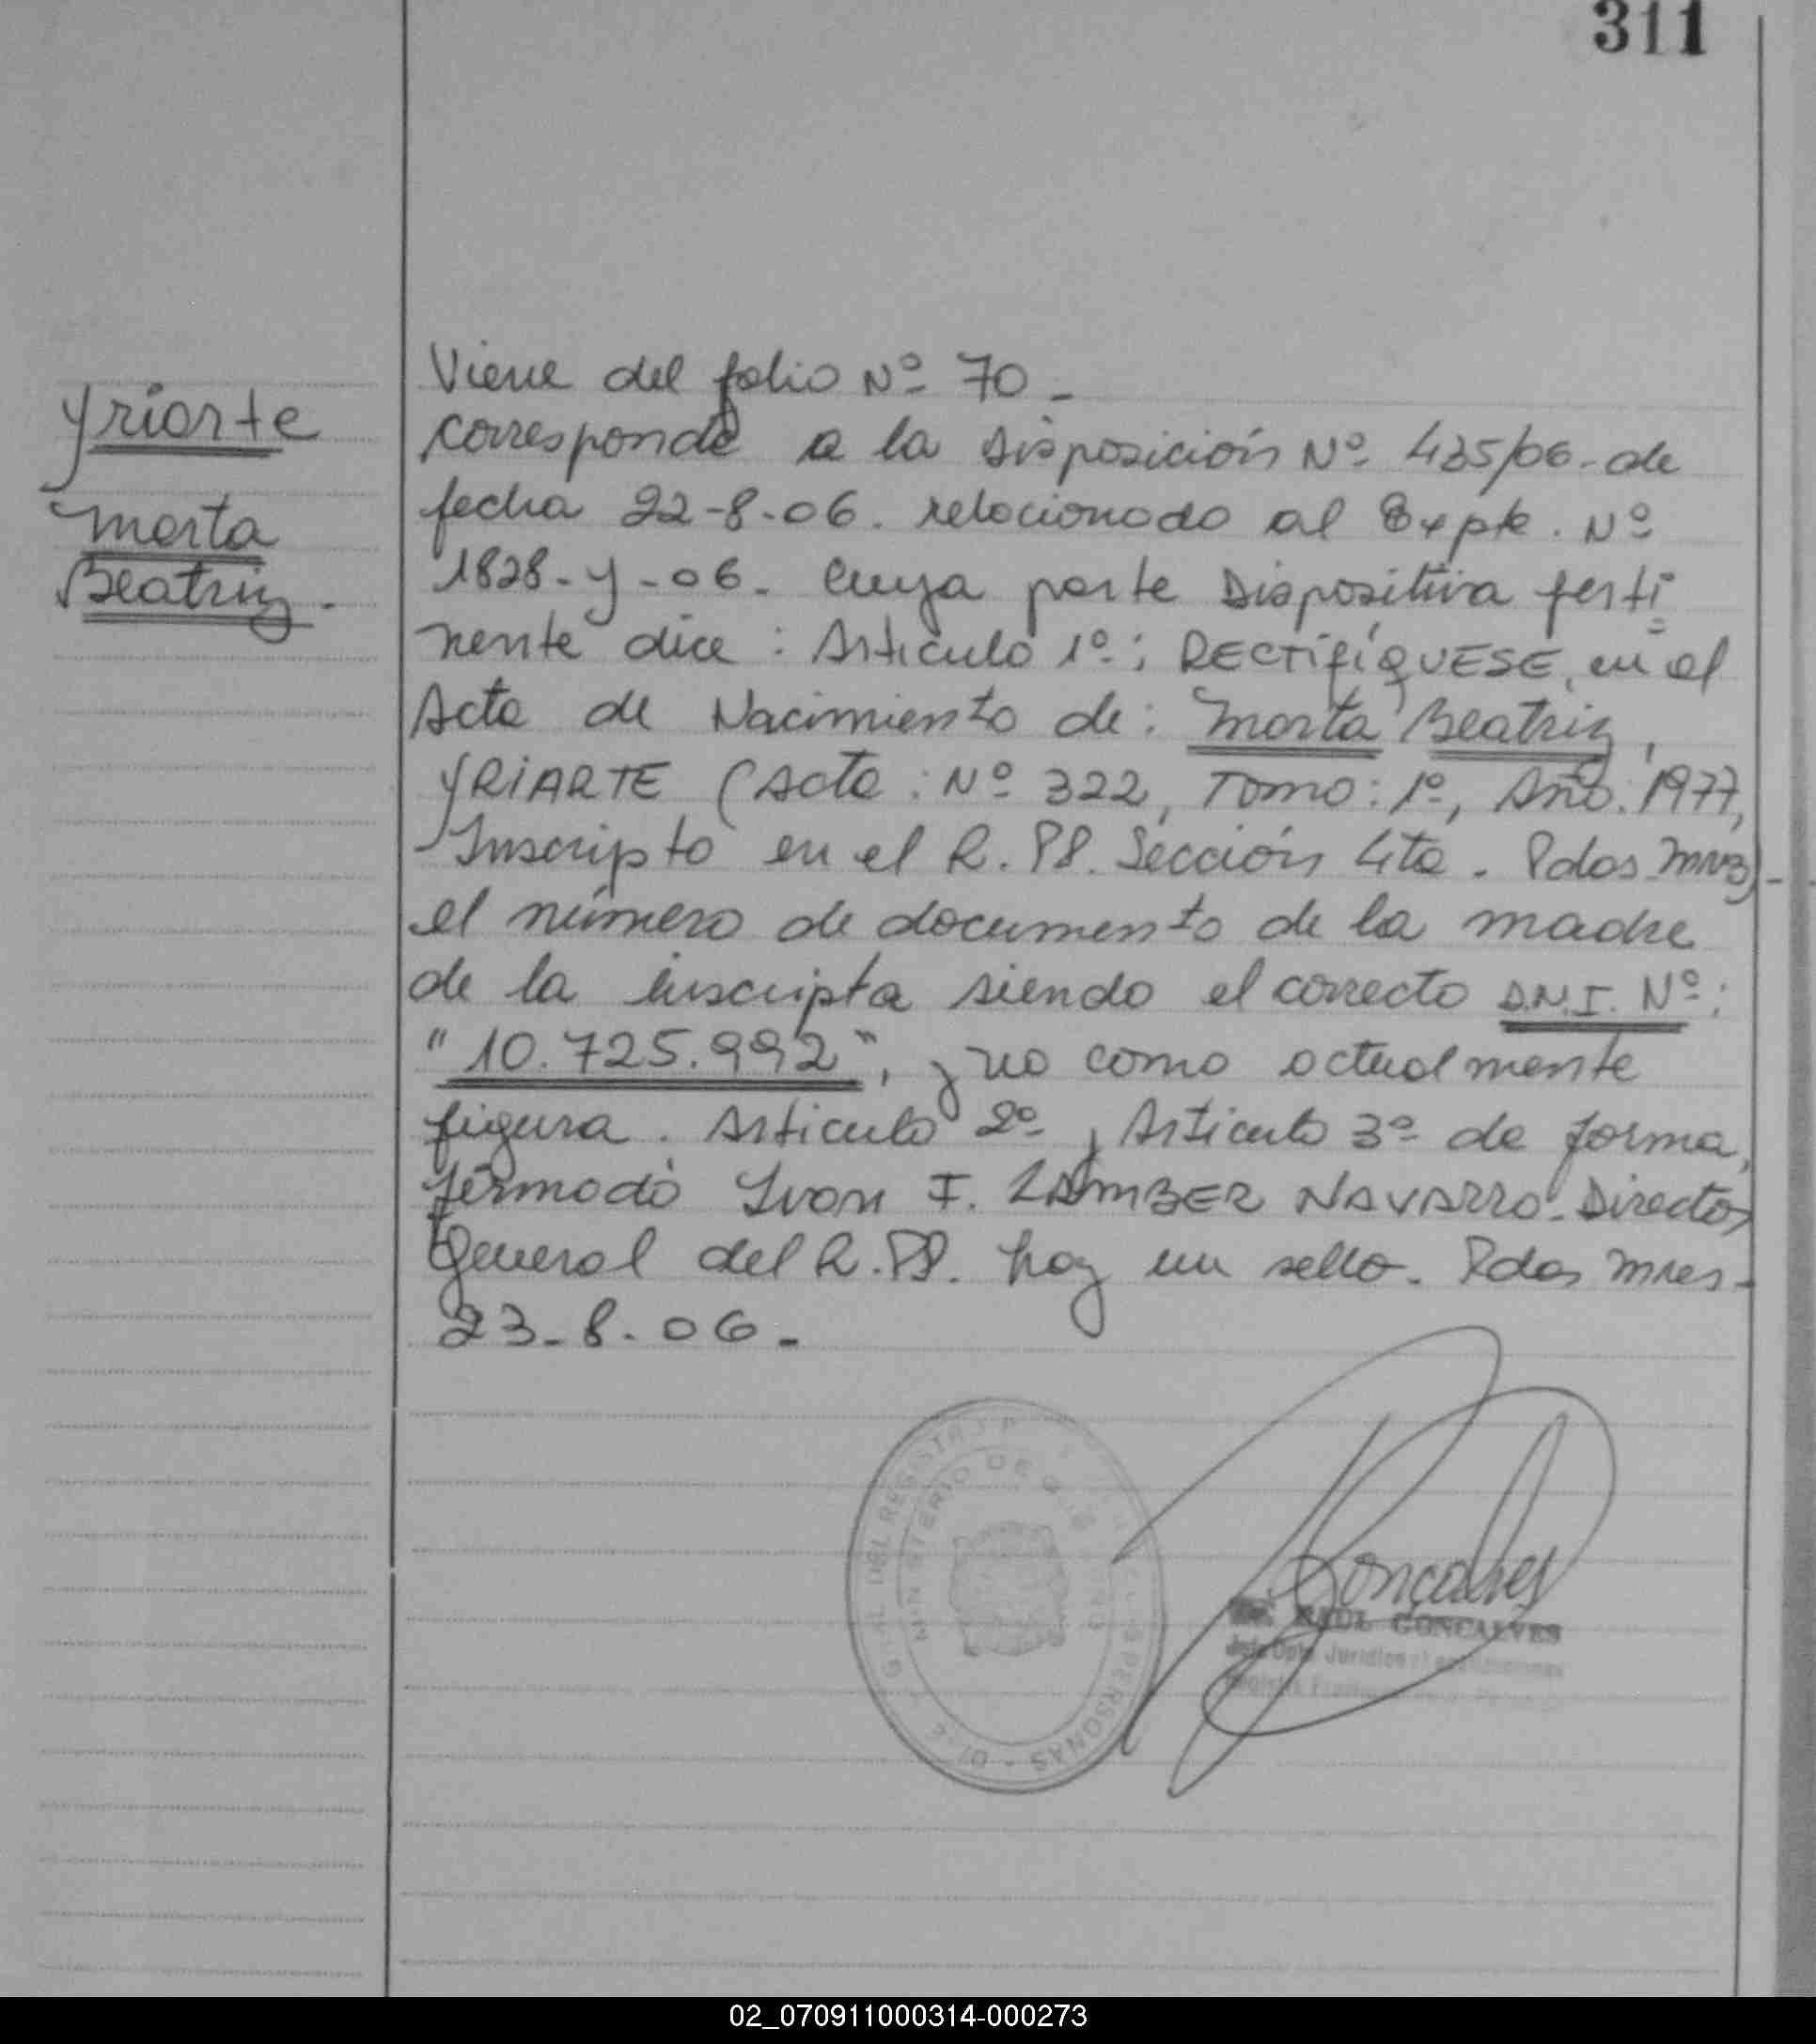 311
Yriarte
Marta
Beatriz.
Viene del folio Nº 70 -
corresponde a la Disposición Nº 435/06 - de
fecha 22-8-06. relacionado al Expte. Nº
1828-Y-06. Cuya parte Dispositiva perti
nente dice: Articulo 1º: RECTIFÍQUESE, en el
Acta de Nacimiento de: Marta Beatriz,
YRIARTE (Acta: Nº 322, Tomo: 1º, Año: 1977,
Inscripto en el R. PP. Sección 4ta. Pdas Mnes) -
el número de documento de la madre
de la inscripta siendo el correcto D.N.I. Nº:
"10.725.992", y no como actualmente
figura. Articulo 2º y Articulo 3º de forma,
firmado Ivan F. ZAMBER NAVARRO - Director
General del R. PP. hay un sello. Pdas Mnes -
23-8-06 -
MINISTERIO DE GOBIERNO
DEL REGISTRO
PERSONAS
Goncalves
RAUL GONCALVES
02_070911000314-000273